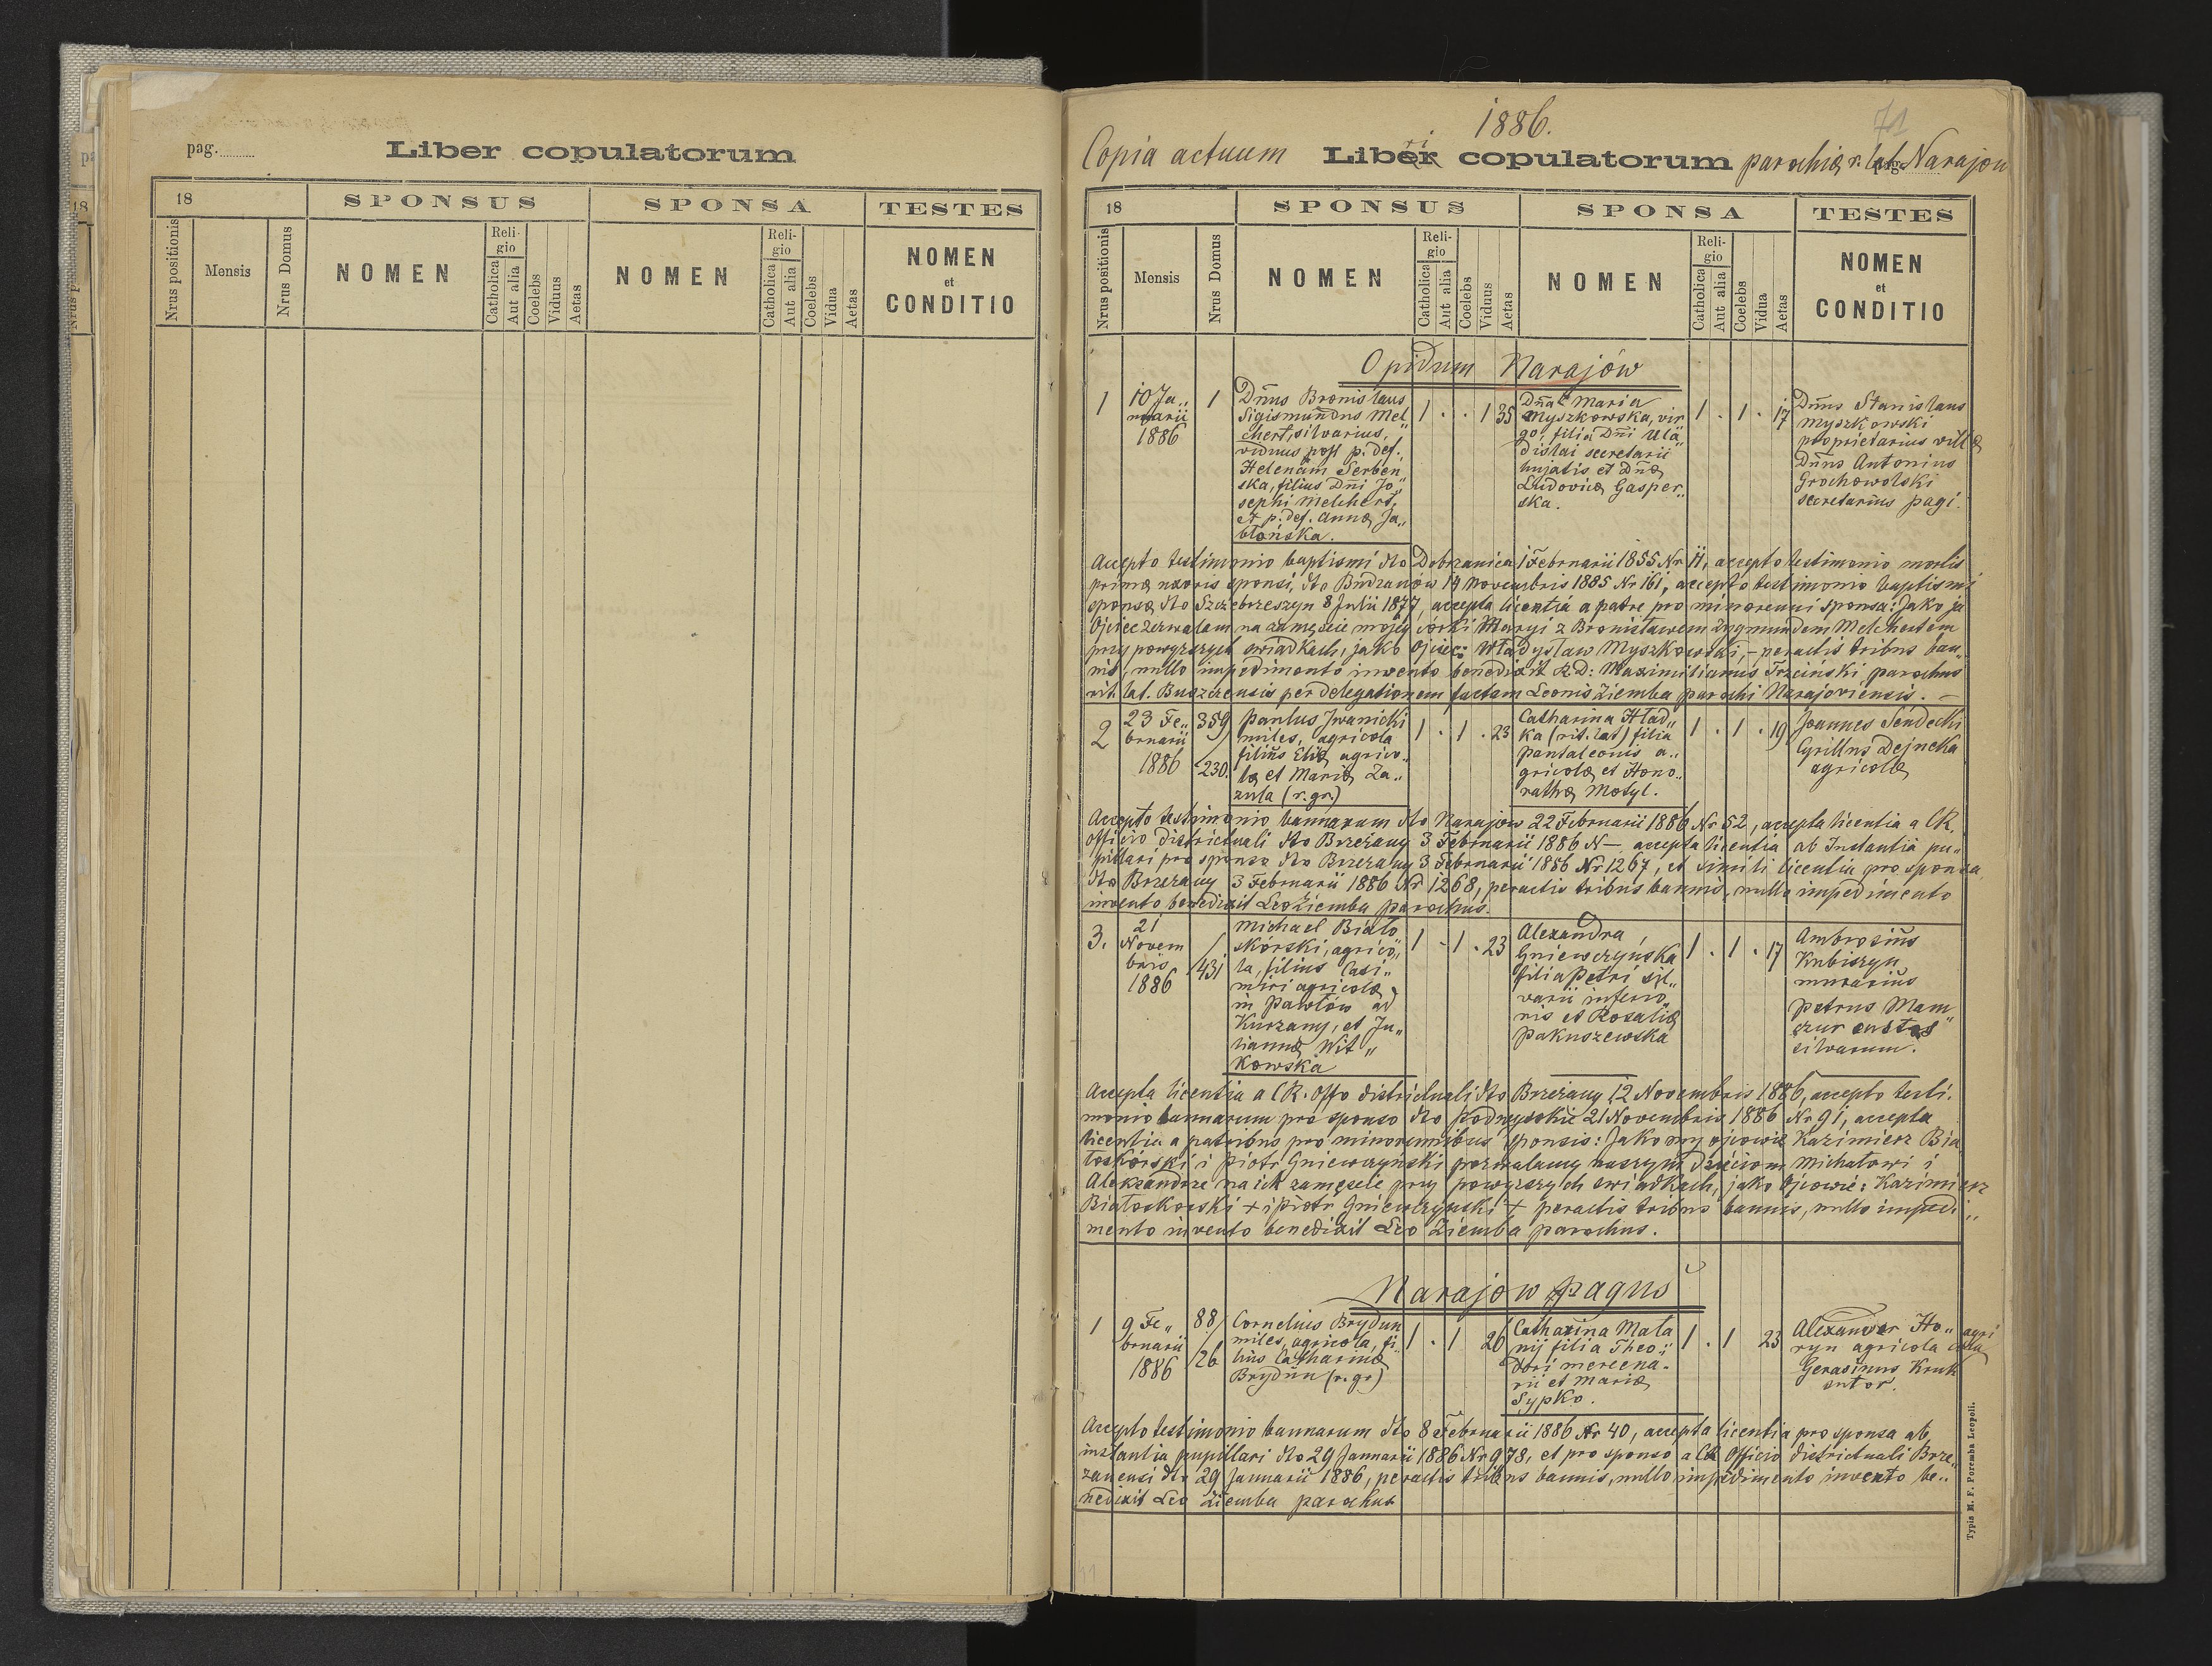 pag.
Liber copulatorum
18
SPONSUS
SPONSA
TESTES
Nrus positionis
Mensis
Nrus Domus
NOMEN
Religio
Catholica
Aut alia
Coelebs
Viduus
Aetas
NOMEN
Religio
Catholica
Aut alia
Coelebs
Vidua
Aetas
NOMEN
et
CONDITIO
1886.
71
Copia actuum Libri copulatorum parochiæ r. lat. Narajow
pag.
18
SPONSUS
SPONSA
TESTES
Nrus positionis
Mensis
Nrus Domus
NOMEN
Religio
Catholica
Aut alia
Coelebs
Viduus
Aetas
NOMEN
Religio
Catholica
Aut alia
Coelebs
Vidua
Aetas
NOMEN
et
CONDITIO
Opidum Narajów
1
10 Ja„
nuarii
1886
1
Dnus Bronislaus
Sigismundus Mel„
chert, silvarius,
viduus post p. def.
Helenam Serben
ska, filius Dni Jo„
sephi Melchert,
et p. def. Annæ Ja„
błońska.
1 . . 1 35
Dna Maria
Myszkowska, vir
go, filia Dni Ula„
dislai secretarii
hujatis et Dnæ
Ludovicæ Gasper„
ska.
1 . 1 . 17
Dnus Stanislaus
Myszkowski
proprietarius villæ
Dnus Antonius
Grochowolski
secretarius pagi.
Accepto testimonio baptismi dto Dobzanica 1 Februarii 1855 Nr 11, accepto testimonio mortis
primæ uxoris sponsi, dto Budzanów 19 Novembris 1885 Nr 161, accepto testimonio baptismi
sponsæ dto Szczebrzeszyn 8 Julii 1877, accepta licentia a patre pro minorenni sponsa: Jako ja
Ojciec zezwalam na zamęście mojej córki Maryi z Bronisławem Zygmundem Melchertem
przy powyższych świadkach, jako Ojciec: Władysław Myszkowski, – peractis tribus ban„
nis, nullo impedimento invento benedixit R.D: Maximilianus Trzciński parochus
rit. lat. Buszczensis per delegationem factam Leonis Ziemba parochi Narajoviensis. –
2
23 Fe„
bruarii
1886
359
230.
Paulus Iwanicki
miles, agricola
filius Eliæ agrico„
læ et Mariæ Za„
zula (r. gr.)
1 . 1 . 23
Catharina Hlad„
ka (rit. lat) filia
Pantaleonis a„
gricolæ et Hono„
rathæ Motyl.
1 . 1 . 19
Joannes Sendecki
Cyrillus Dejneka
agricolæ
Accepto testimonio bannarum dto Narajow 22 Februarii 1886 Nr 52, accepta licentia a CR.
officio districtuali dto Brzeżany 3 Februarii 1886 N–, accepta licentia ab Instantia pu„
pillari pro sponso dto Brzeżany 3 Februarii 1886 Nr 1267, et simili licentia pro sponsa
dto Brzeżany 3 Februarii 1886 Nr 1268, peractis tribus bannis, nullo impedimento
invento benedixit Leo Ziemba parochus.
3.
21
Novem
bris
1886
/431
Michael Biało
skórski, agrico„
la, filius Casi„
miri agricolæ
in Pawłów ad
Kurzany, et Ju„
liannæ Wit„
kowska
1 . 1 . 23
Alexandra
Gniewczyńska
filia Petri sil„
varii inferio„
ris et Rosaliæ
Pakuszewska
1 . 1 . 17
Ambrosius
Kubiszyn
murarius
Petrus Mam„
czur custos
silvarum.
Accepta licentia a CR. Offo districtuali dto Brzeżany 12 Novembris 1886, accepto testi.
monio bannarum pro sponso dto Podwysokie 21 Novembris 1886 Nr 91, accepta
licentia a patribus pro minorennibus sponsis: Jako my ojcowie Kazimierz Bia
łoskórski i Piotr Gniewczyński pozwalamy naszym dzieciom Michałowi i
Aleksandrze na ich zamęście przy powyższych świadkach, jako Ojcowie: Kazimierz
Białoskorski + i Piotr Gniewczyński + peractis tribus bannis, nullo impedi„
mento invento benedixit Leo Ziemba parochus.
Narajow pagus
1
9 Fe„
bruarii
1886
88/
/26
Cornelius Brydun
miles, agricola, fi„
lius Catharinæ
Brydun (r. gr)
1 . 1 26
Catharina Mala
nij filia Theo„
dori mercena„
rii et Mariæ
Sypko.
1 . 1 23
Alexander Ho„
ryn agricola
Gerasimus Kruk
sutor.
Accepto testimonio bannarum dto 8 Februarii 1886 Nr 40, accepta licentia pro sponsa ab
instantia pupillari dto 29 Januarii 1886 Nr 978, et pro sponso a CR Officio districtuali Brze„
zanensi dto 29 Januarii 1886, peractis tribus bannis, nullo impedimento invento be„
nedixit Leo Ziemba parochus
Typis M. F. Poremba Leopoli.